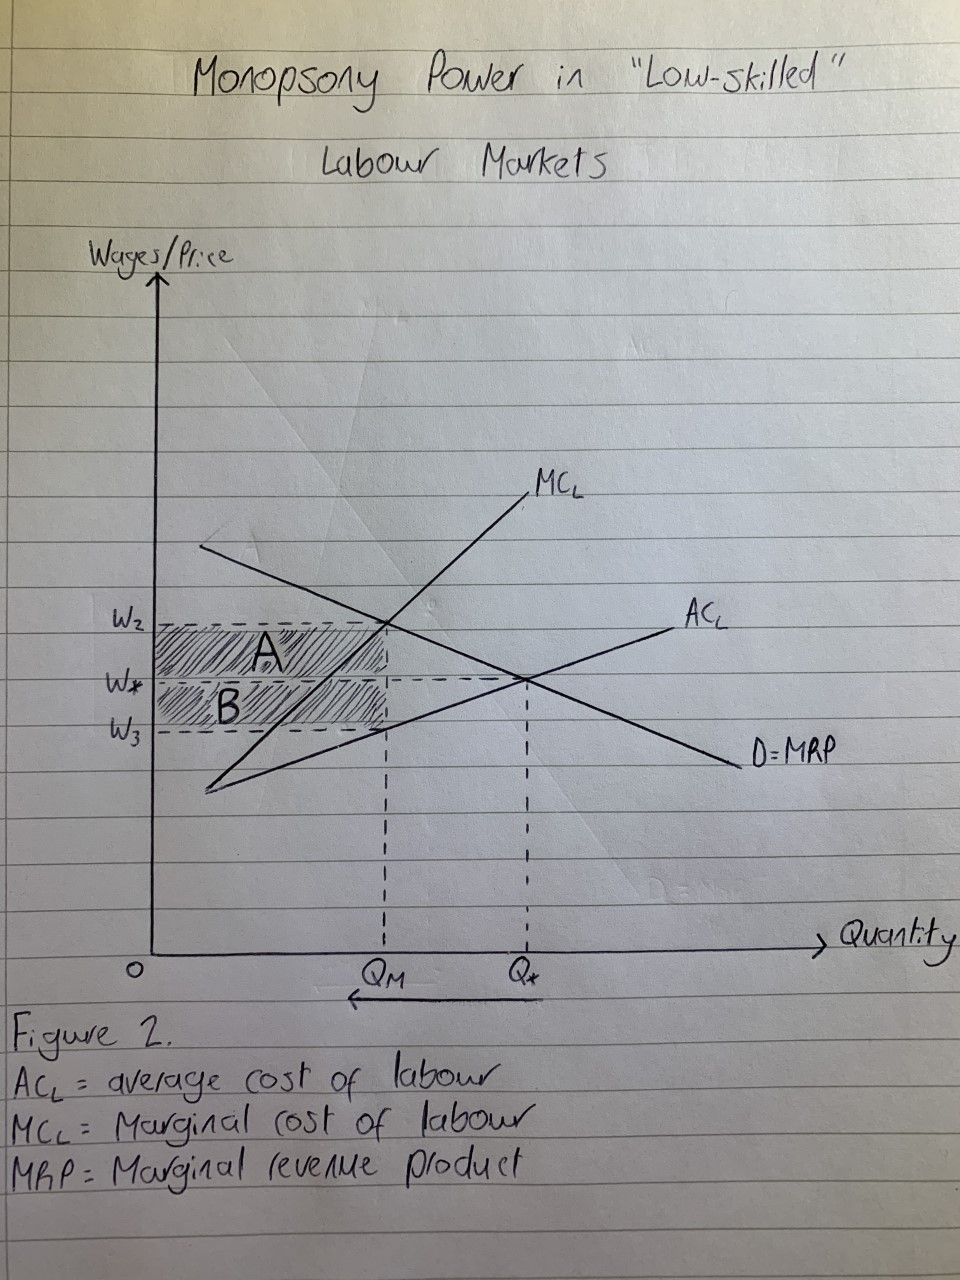 Monopsony Power in "Low-skilled"
Labour Markets
Wages/Price
MCL
W2
ACL
A
W*
B
W3
D=MRP
Quantity
O
QM
Q*
Figure 2.
ACL = average cost of labour
MCL = Marginal cost of labour
MRP = Marginal revenue product